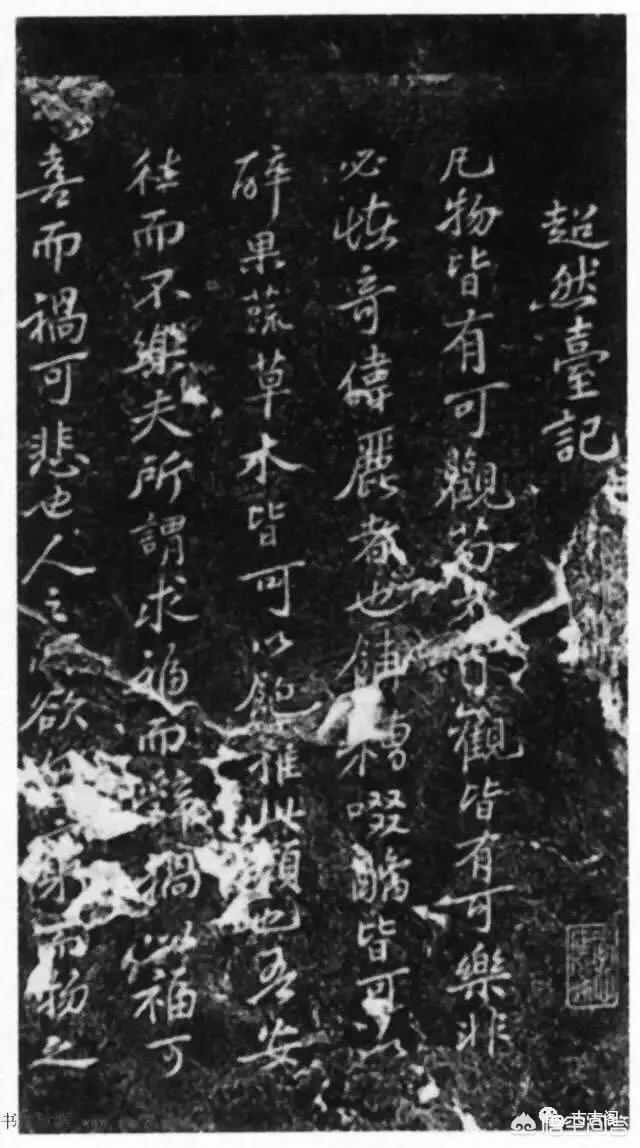 超然臺記
凡物皆有可觀苟有可觀皆有可樂非
必怪奇偉麗者也餔糟啜醨皆可以
醉果蔬草木皆可以飽推此類也吾安
往而不樂夫所謂求福而辭禍以福可
喜而禍可悲也人之欲窮而物之
书 www